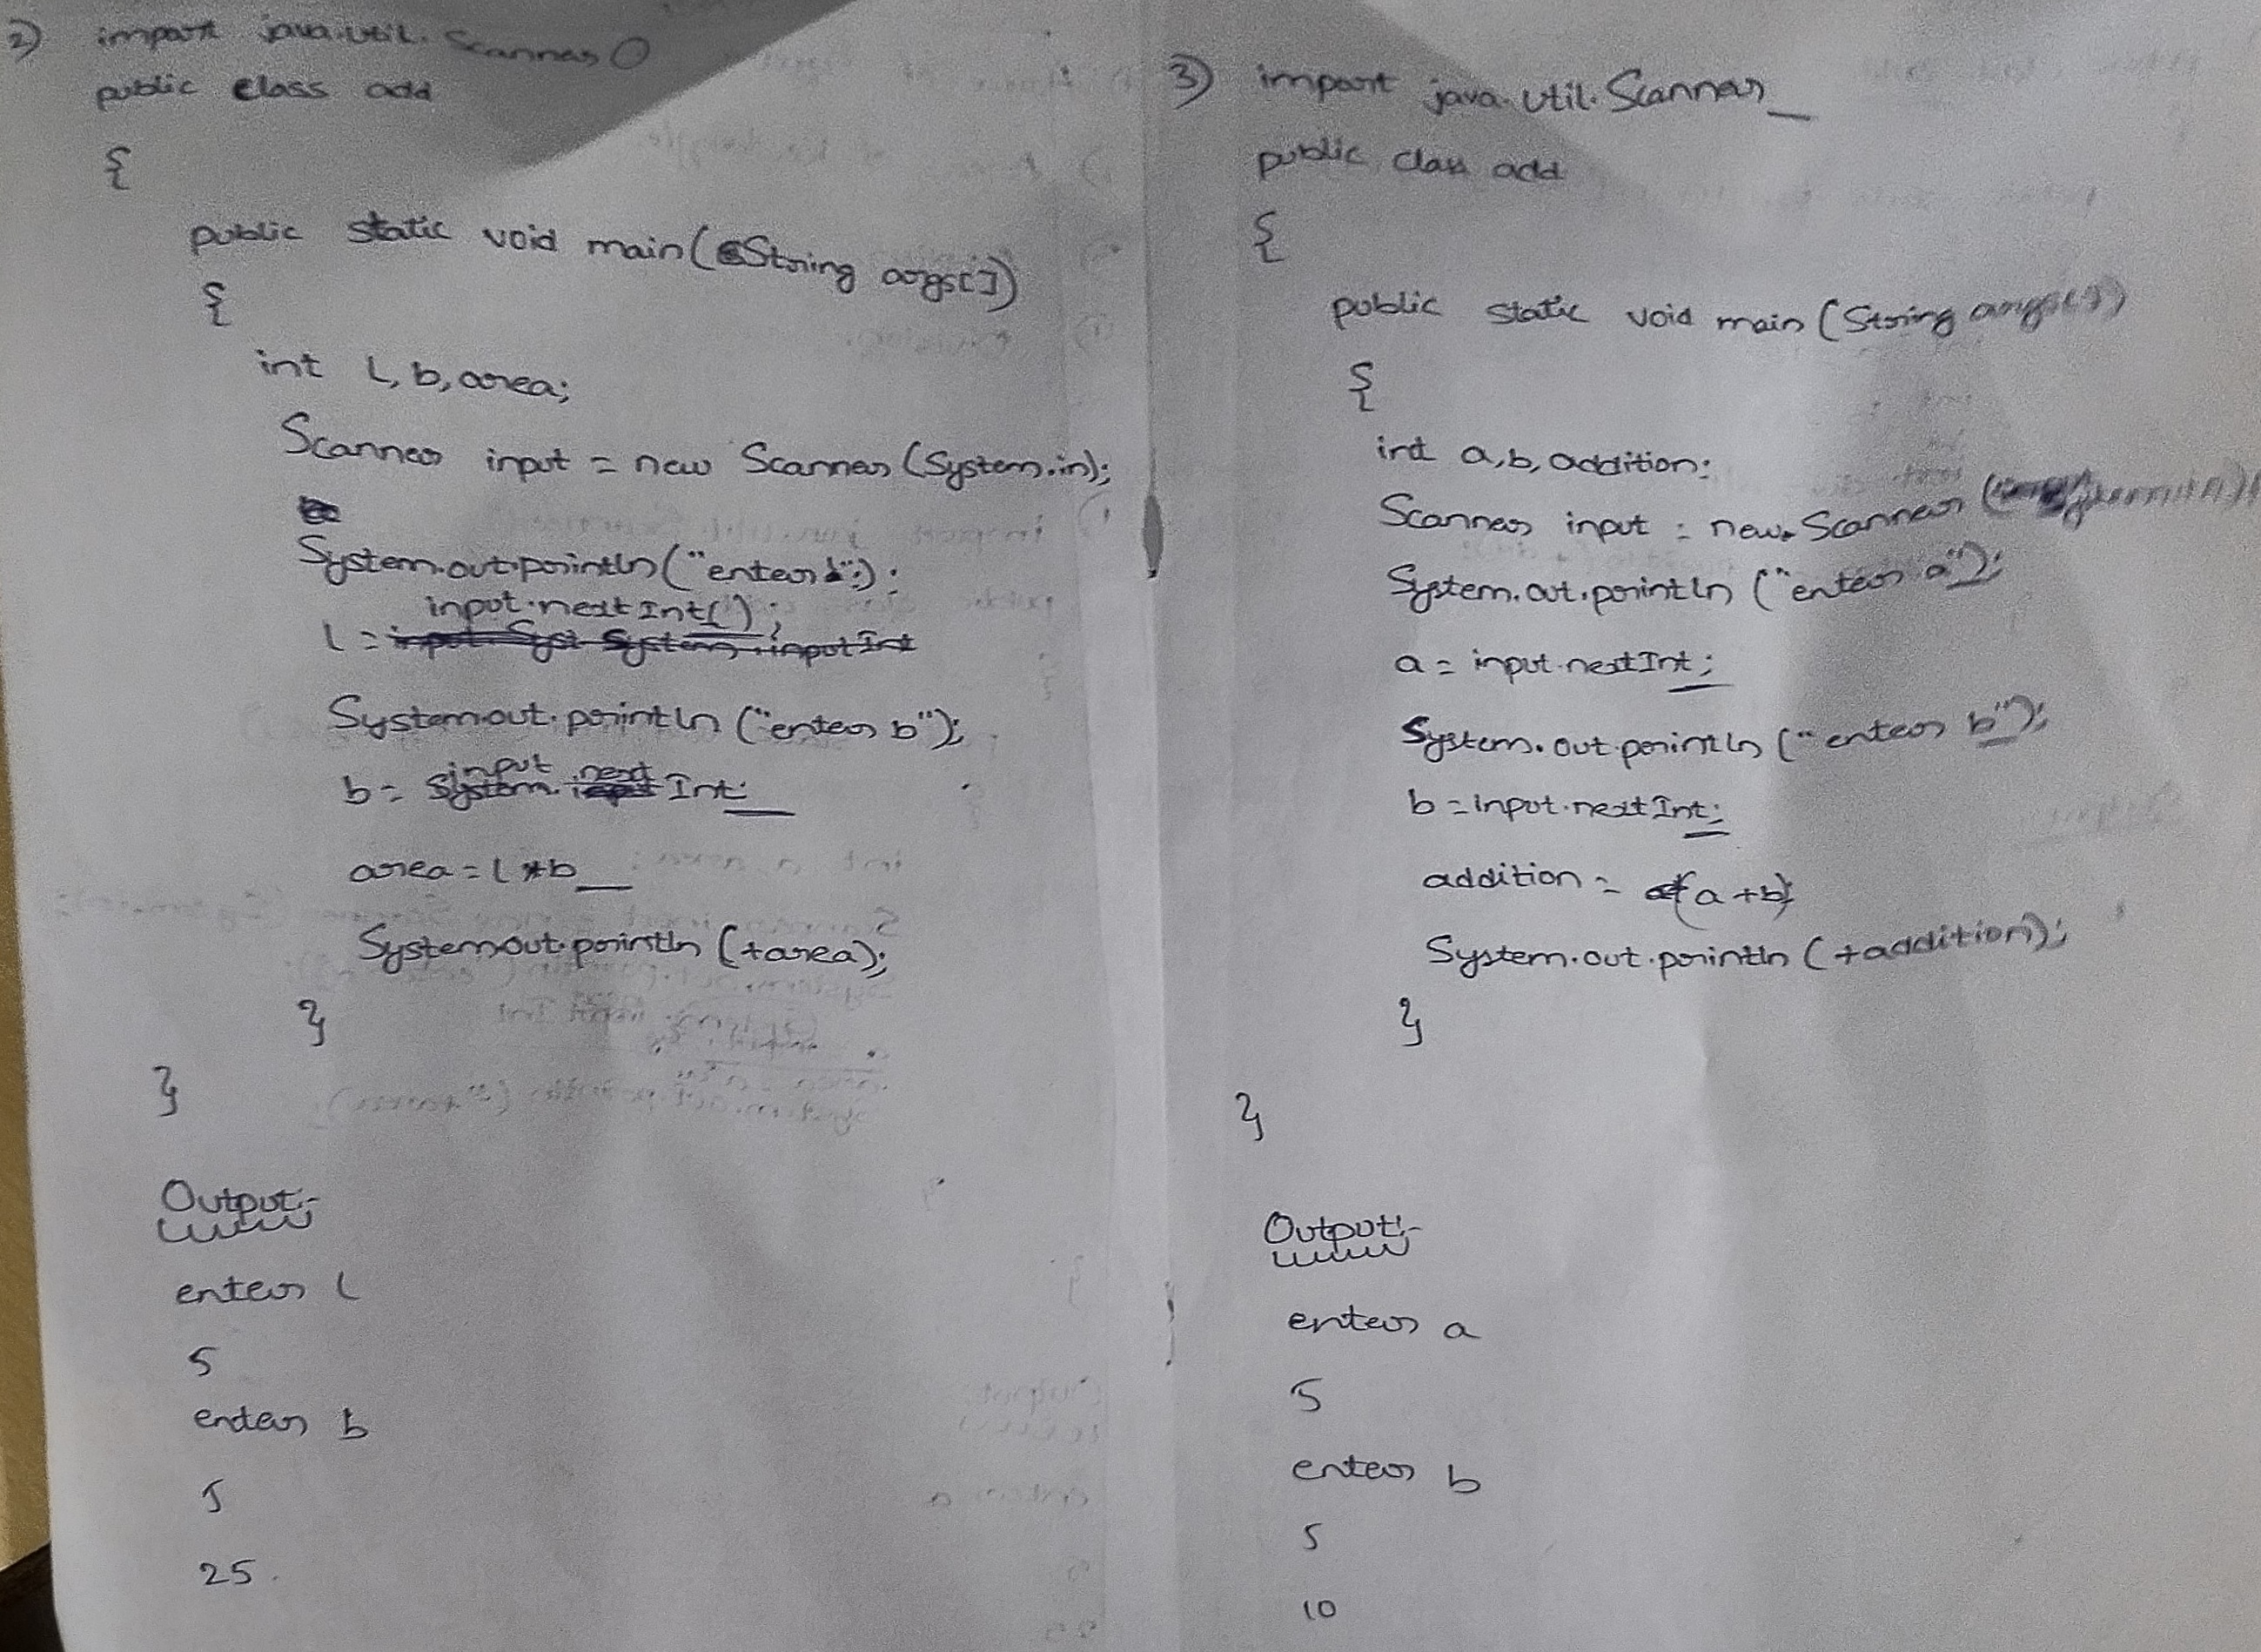 2) import java.util.Scanner
public class add
{
public static void main(String args[])
{
int l, b, area;
Scanner input = new Scanner (System.in);
System.out.println("enter l");
input.nextInt();
l =
System.out.println ("enter b");
input next
b = Int;
area = l * b
System.out.println (+area);
}
}
Output:-
enter l
5
enter b
5
25
3) import java.util.Scanner
public class add
{
public static void main (String args[])
{
int a, b, addition;
Scanner input = new Scanner (
System.out.println ("enter a");
a = input.nextInt;
System.out.println ("enter b");
b = input.nextInt;
addition = (a+b);
System.out.println (+addition);
}
}
Output:-
enter a
5
enter b
5
10